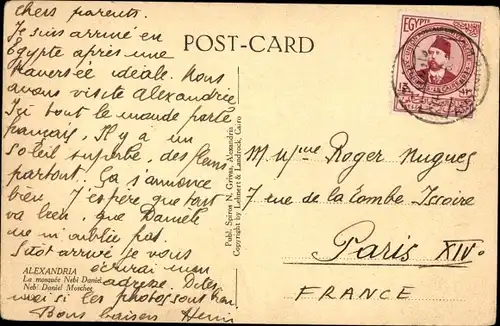 chers parents.
Je suis arrivé en
Egypte après une
traversée idéale. Nous
avons visité Alexandrie
Ici tout le monde parle
français. Il y a un
soleil superbe, des fleurs
partout. Ça s'annonce
bien. J'espère que tout
va bien, que Danièle
ne m'oublie pas.
Sitôt arrivé je vous
écrirai mon
adresse. Dites
moi si les photos sont bon.
Bons baisers Henri
ALEXANDRIA
La mosquée Nebi Daniel
Nebi Daniel Moschee
Publ. Spiros N. Grivas, Alexandria
Copyright by Lehnert & Landrock, Cairo
POST-CARD
EGYPTE
M. Mme Roger Nugues
7 rue de la Tombe Issoire
Paris XIV°
FRANCE